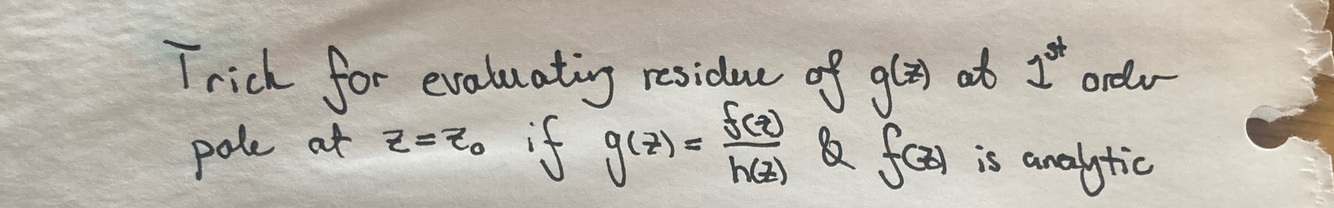 Trick for evaluating residue of g(z) at 1st order
pole at z=z₀ if g(z) = f(z)/h(z) & f(z) is analytic